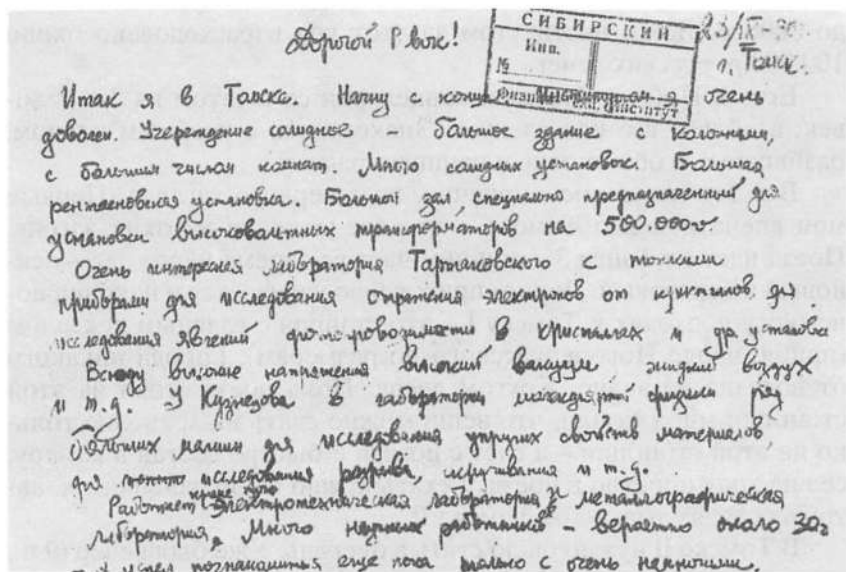 Дорогой Р вок!
23/IX 30.
г. Томск.
СИБИРСКИЙ
Инв.
№
Физико-
институт
Итак я в Томске. очень
доволен. Учреждение солидное большое здание с колоннами,
с большим числом комнат. Много солидных установок. Большая
рентгеновская установка. Большой зал, специально предназначенный для
установки высоковольтных трансформаторов на 500.000 v
Очень интересная лаборатория Тартаковского с тонкими
приборами для исследования отражения электронов от кристаллов, для
исследования явлений фотопроводимости в кристаллах и др. установка
Всюду высокие напряжения высокий вакуум жидкий воздух
и т.д. У Кузнецова в лаборатории молекулярн. физики ряд
больших машин для исследования упругих свойств материалов,
для исследования разрыва скручивания и т.д.
Работает кроме того электротехническая лаборатория и металлографическая
лаборатория. Много научных работников – вероятно около 30.
успел познакомиться еще пока только с очень немногими.